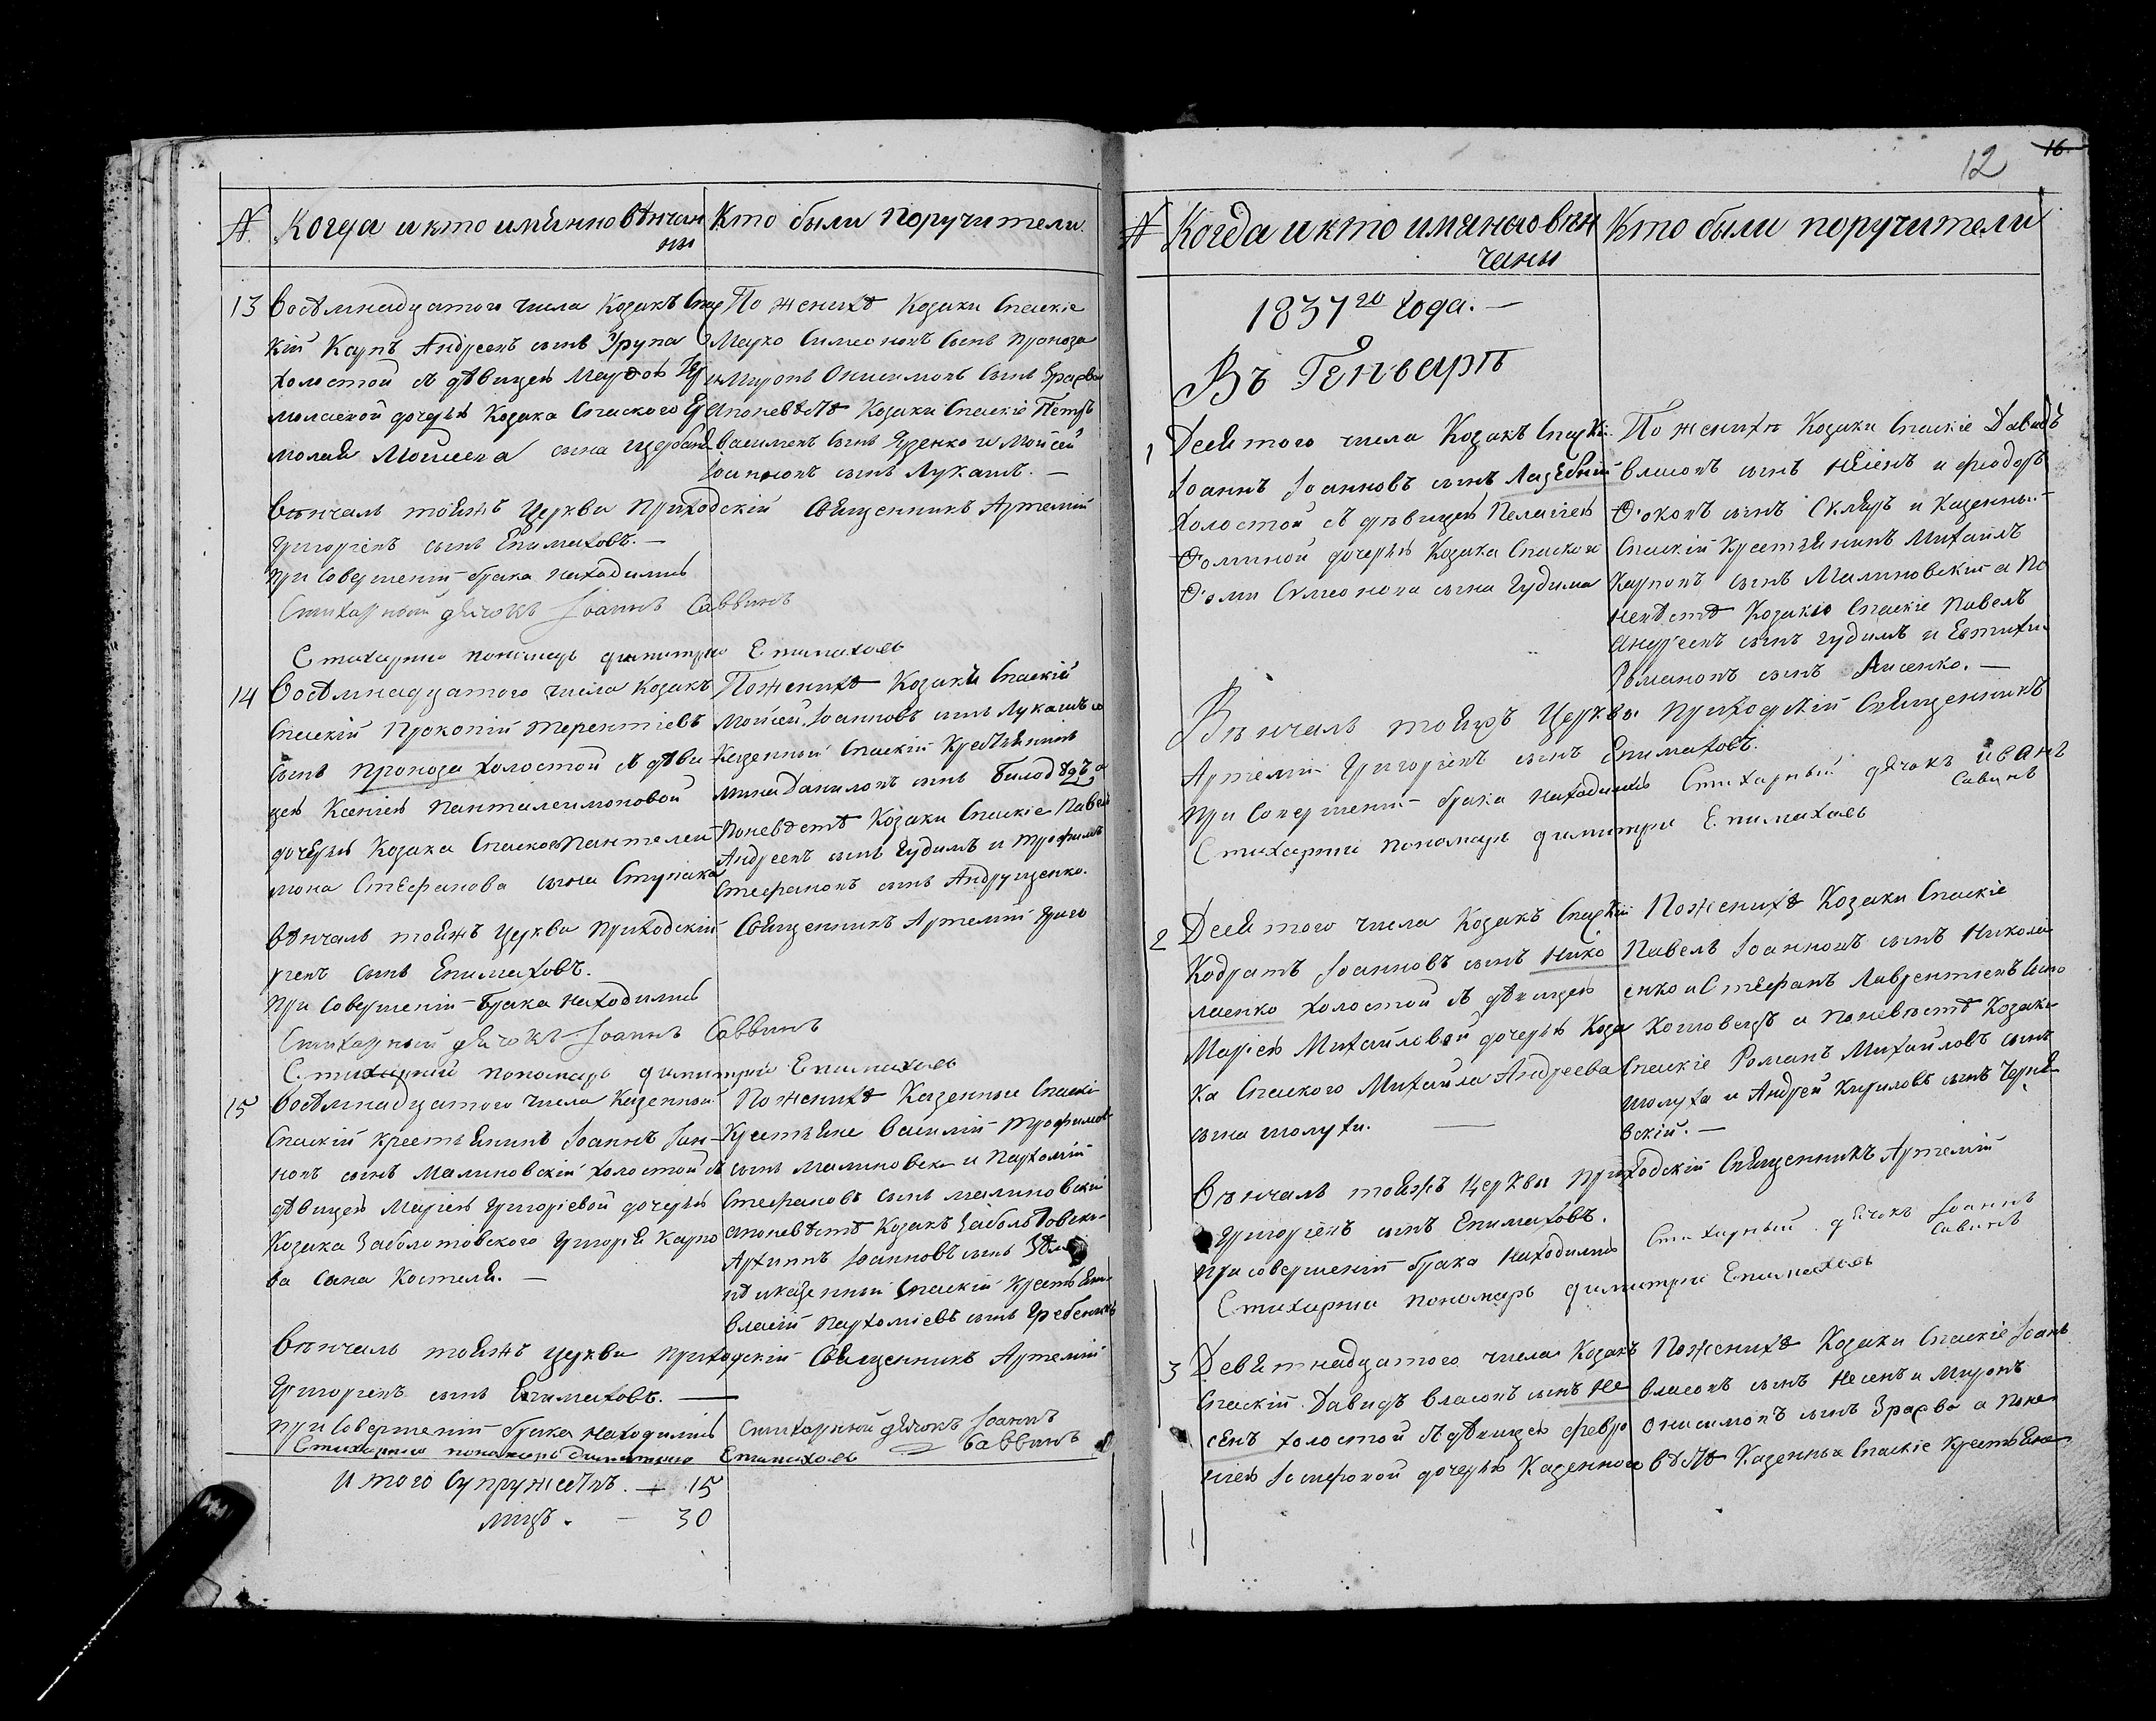 № Когда и кто имянно вѣнчан
ны
Кто были поручители
13 Восемнадцатого числа Козакъ Спас
кій Карпъ Андреевъ сынъ
холостой съ дѣвицею
молаевой дочерью Козака Спаского Ер
молая Моисеева сына
По женихѣ Козаки Спаскіе
Марко Симеоновъ сынъ Проноза
и Миронъ Онисимовъ сынъ
а поневѣстѣ Козаки Спаскіе Петръ
сынъ и Моисей
Іоанновъ сынъ Лукашъ. —
Вѣнчалъ тояжъ Церкви Приходскій Священникъ Артемій
Григоріевъ сынъ Епимаховъ. —
При Совершеніи брака находились
Стихарный дячокъ Іоаннъ Саввинъ
Стихарню пономарь димитрію Епимаховъ
14 Восемнадцатого числа Козакъ
Спаскій Прокопій Терентіевъ
сынъ Проноза холостой съ дѣви
цею Ксеніею Панталеимоновой
дочерью Козака Спаского Пантелеи
мона Стефанова сына Ступака
По женихѣ Козаки Спаскій
Мойсей Іоанновъ сынъ Лукашъ и
Казенный Спаскій Крестянинъ
Мина Даниловъ сынъ а
Поневѣстѣ Козаки Спаскіе Павелъ
Андреевъ сынъ Гудимъ и Трофимъ
Стефановъ сынъ Андрущенко.
Вѣнчалъ тояжъ Церкви Приходскій Священникъ Артемій Григо
ріевъ сынъ Епимаховъ.
При Совершеніи Брака находились
Стихарный дячокъ Іоаннъ Саввинъ
Стихарній пономарь димитрій Епимаховъ
15 Восемнадцатого числа Казенный
Спаскій крестьянинъ Іоаннъ Іан-
новъ сынъ Малиновскій холостой съ
дѣвицею Маріею Григоріевой дочерью
Козака Заболотовского Григорія Карпо
ва сына Костеля. —
По женихѣ Казенные Спаскі
Крестьяне Василій Трофимов
сынъ Малиновски и Пархомій
Стефановъ сынъ Малиновскій
а поневѣстѣ Козакъ Заболотовски
Архипъ Іоанновъ сынъ
и казенный Спаскій Крестьяни
Власій Пархоміевъ сынъ Гребеникъ
Вѣнчалъ тояжъ Церкви приходскій Священникъ Артемій
Григоріевъ сынъ Епимаховъ. —
При Совершеніи брака находились Стихарной дячокъ Іоаннъ
Саввинъ
Стихарню пономарь Димитрию Епимаховъ
Итого Супружествъ. — 15
лицъ. — 30
12 16
№ Когда и кто имянно вѣн
чаны
Кто были поручители
1837го Года. —
Въ Генварѣ
1 Десятого числа Козакъ Спаскій
Іоаннъ Іоанновъ сынъ Лазебный
холостой съ дѣвицею Пелагіею
Ѳоминой дочерью Козака Спаского
Ѳоми Симеонова сына Гудима
По женихѣ Козаки Спаскіе Давидъ
Власовъ сынъ Несенъ и Феодоръ
сынъ Скляръ и Казенны-
Спаскій Крестьянинъ Михаилъ
Карповъ сынъ Малиновскій а По
невѣстѣ Козакіи Спаскіе Павелъ
Андреевъ сынъ Гудимъ и Евтихи
Романовъ сынъ Лисенко. —
Вѣнчалъ тояжъ Церкви Приходскій Священникъ
Артемій Григоріевъ сынъ Епимаховъ.
При Совершеніи брака находились Стихарный дячокъ Иванъ
Савинъ
Стихарній пономарь димитри Епимаховъ
2 Десятого числа Козакъ Спаскій
Кодратъ Іоанновъ сынъ Нико
лаенко холостой съ дѣвицею
Маріею Михайловой дочерью Коза
ка Спаского Михайла Андреева
сына Шолухи. —
По женихѣ Козаки Спаскіе
Павелъ Іоанновъ сынъ Никола
енко и Стефанъ Лаврентіевъ сынъ
а Поневѣстѣ Козаки
Спаскіе Романъ Михайловъ сынъ
Шолуха и Андрей Кириловъ сынъ Черня
вскій. —
Вѣнчалъ тояжъ Церкви Приходскій Священникъ Артемій
Григоріевъ сынъ Епимаховъ.
При совершеніи брака находились Стихарный дячокъ Іоаннъ
Савинъ
Стихарни пономарь димитрій Епимаховъ
3 Девятнадцатого числа Козакъ
Спаскій Давидъ Власовъ сынъ Не
сенъ холостой съ дѣвицею Февро
ніею Іосифовой дочерью Казенного
По женихѣ Козаки Спаскіе Іоанъ
Власовъ сынъ Несенъ и Миронъ
Онисимовъ сынъ а Поне
вѣстѣ Казенных Спаскіе Крестьяне